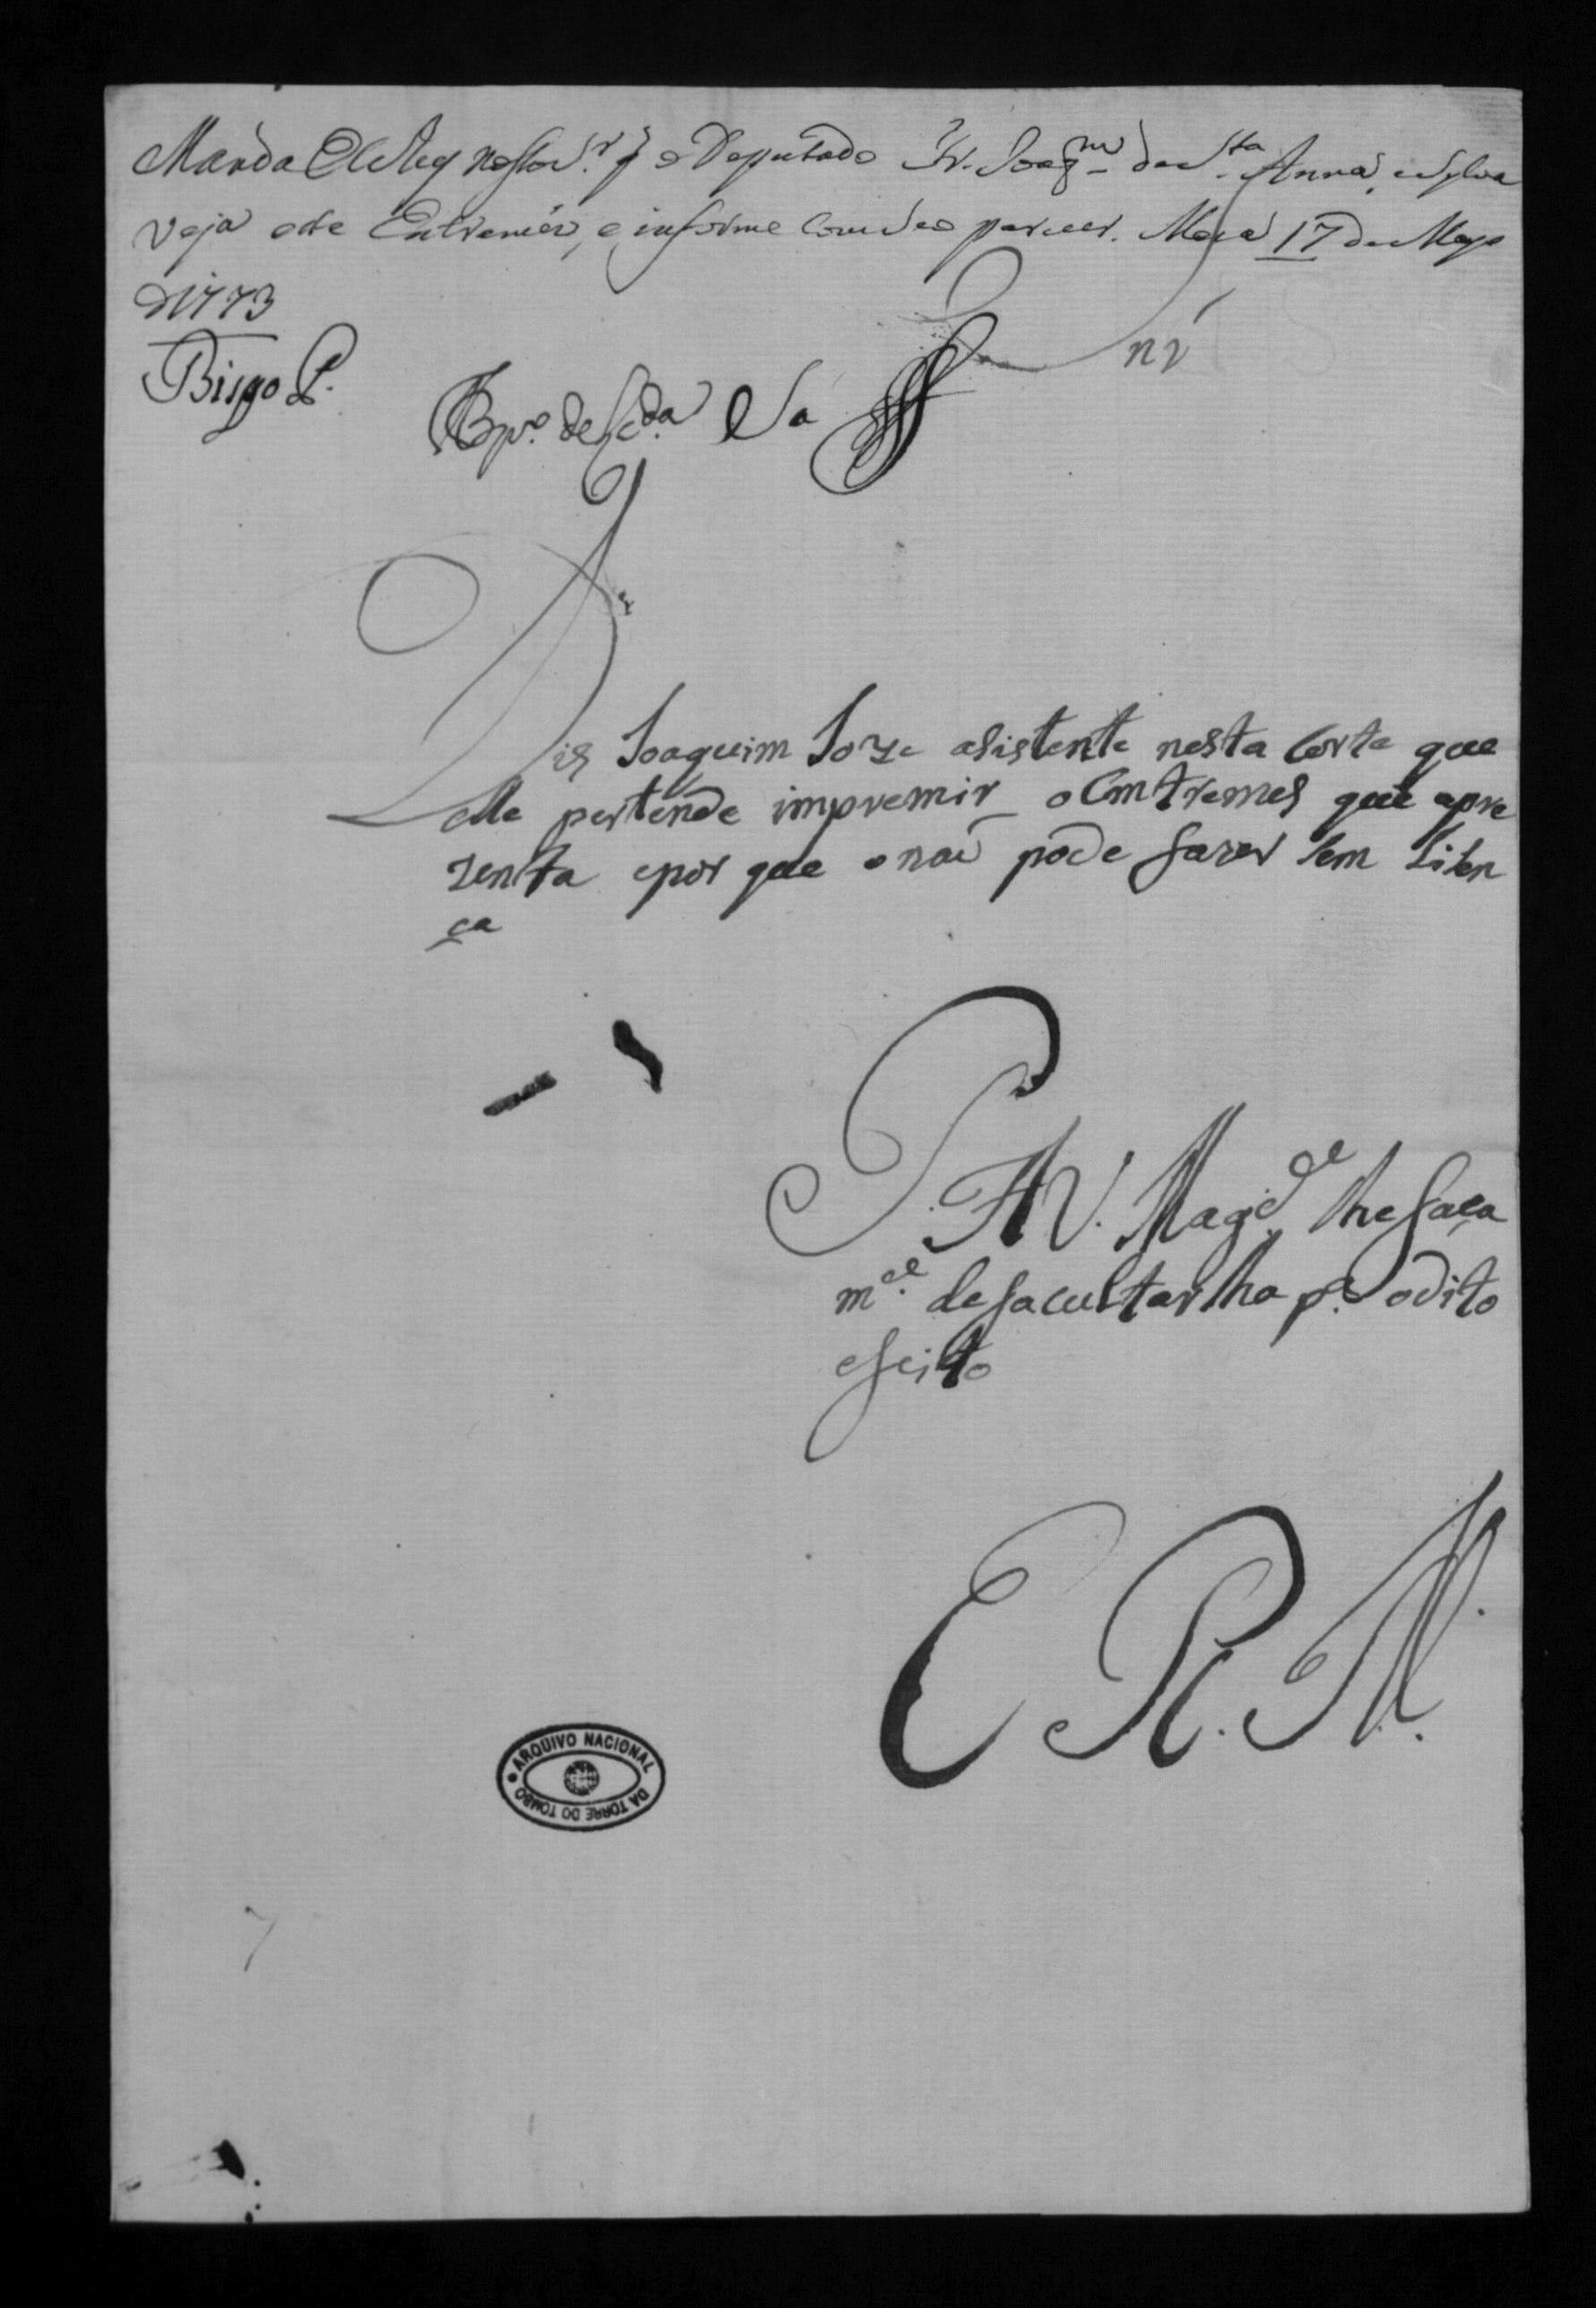 Manda ElRey nosso S.r q o Deputado Fr. Joaq.m de S.ta Anna, e Sylva
veja este Entremés, e informe com seo parecer. Meza 17 de Mayo
d 1773
Bispo P.
Sá
Dis Joaquim Joze asistente nesta Corte que
elle pertende impremir o Emtremes que apre
zenta epor que o naõ pode fazer sem Licen
ça
P. A V. Mag.de lhe faça
m.ce de facultar lha p.a o dito
efeito
E. R. M.
ARQUIVO NACIONAL DA TORRE DO TOMBO